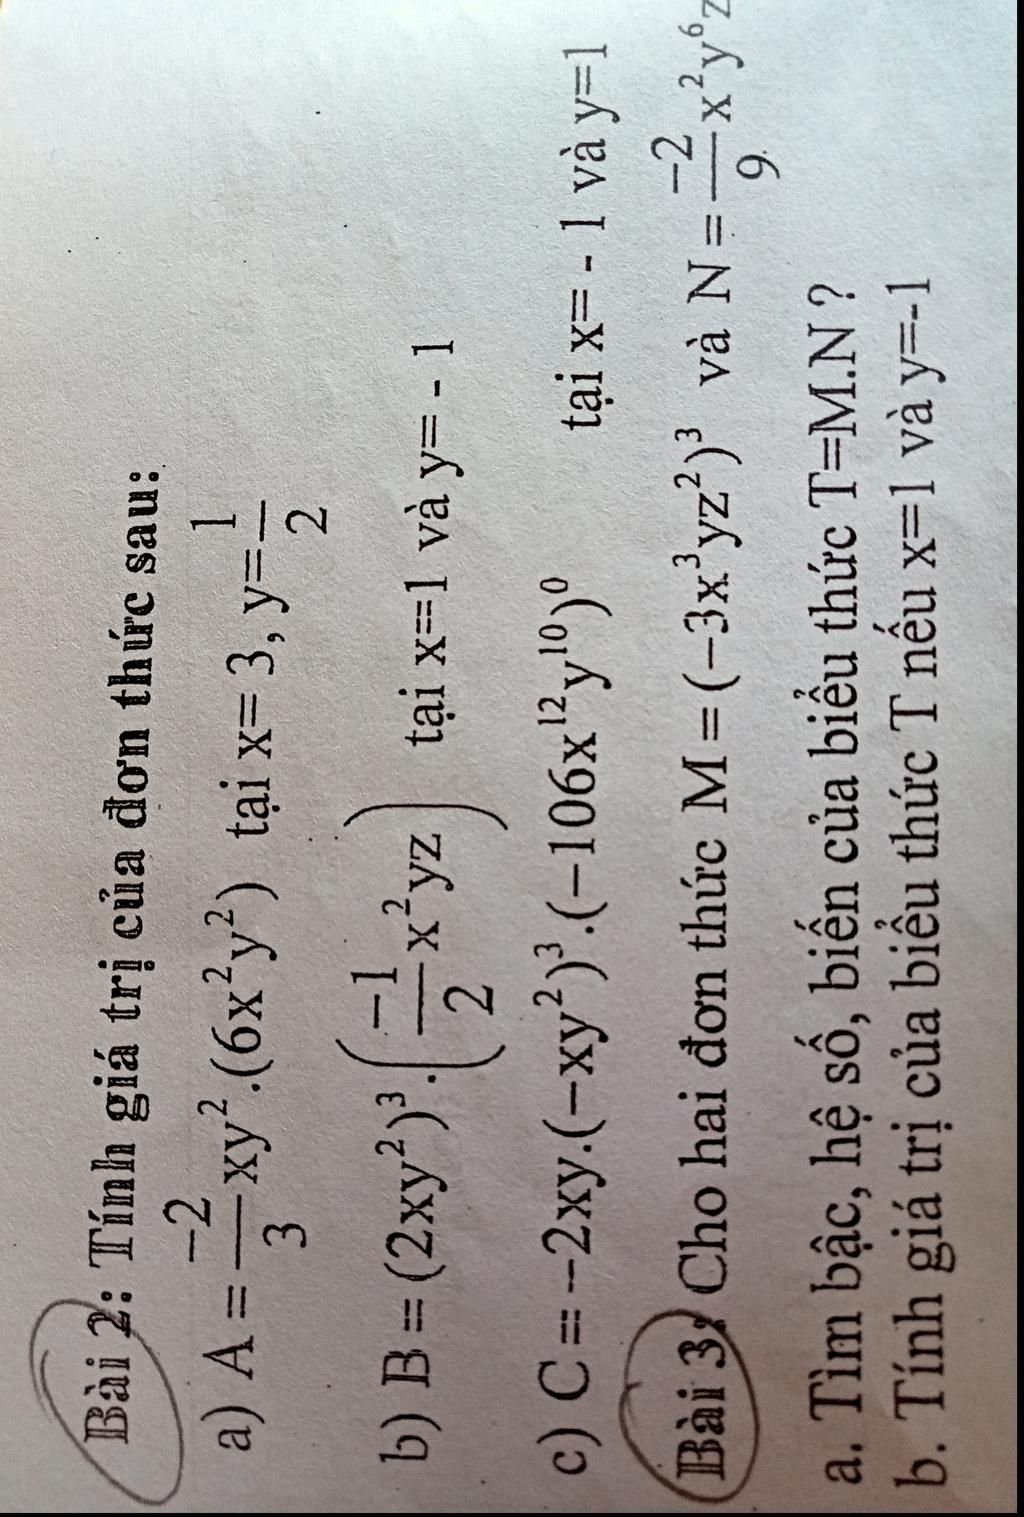 Bài 2: Tính giá trị của đơn thức sau:
a) A = -2/3 xy².(6x²y²) tại x= 3, y= 1/2
b) B = (2xy²)³.(-1/2 x²yz) tại x=1 và y= - 1
c) C = -2xy.(-xy²)³.(-106x¹²y¹⁰)⁰ tại x= - 1 và y=1
Bài 3: Cho hai đơn thức M = (-3x³yz²)³ và N = -2/9 x²y⁶z
a. Tìm bậc, hệ số, biến của biểu thức T=M.N ?
b. Tính giá trị của biểu thức T nếu x=1 và y=-1